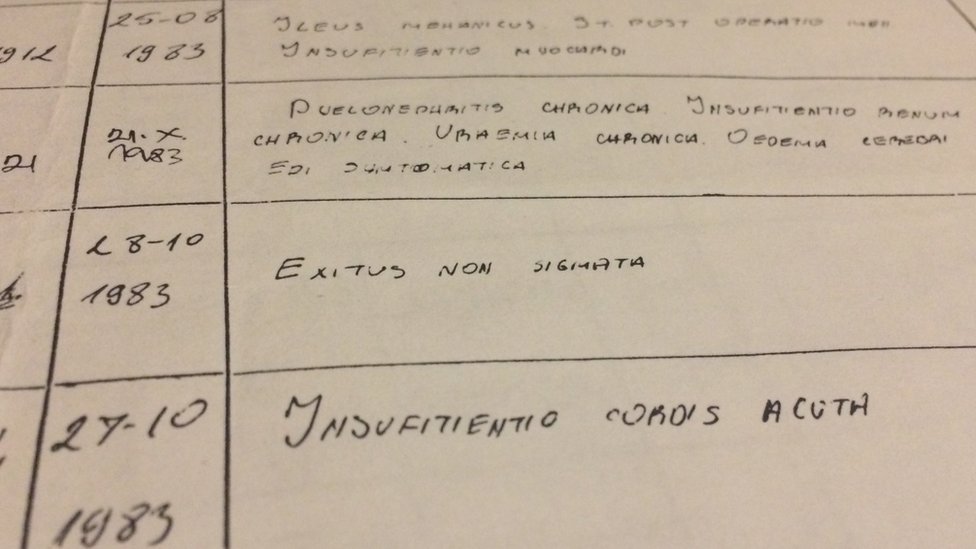 25-08
1983
ILEUS MEHANICUS. ST. POST OPERATIO
INSUFITIENTIO MYOCARDI
1912
21.X.
1983
PYELONEPHRITIS CHRONICA. INSUFITIENTIO RENUM
CHRONICA. URAEMIA CHRONICA. OEDEMA CEREBRI
21
28-10
1983
EXITUS NON SIGMATA
27-10
1983
INSUFITIENTIO CORDIS ACUTA